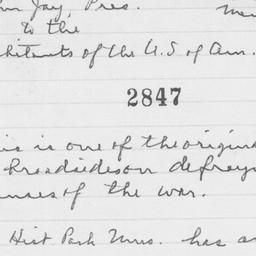 Jay, Pres.
to the
of the U.S of Am.
2847
is is one of the origina
broadsides on defray
enses of the war.
Hist Park Mus. has a